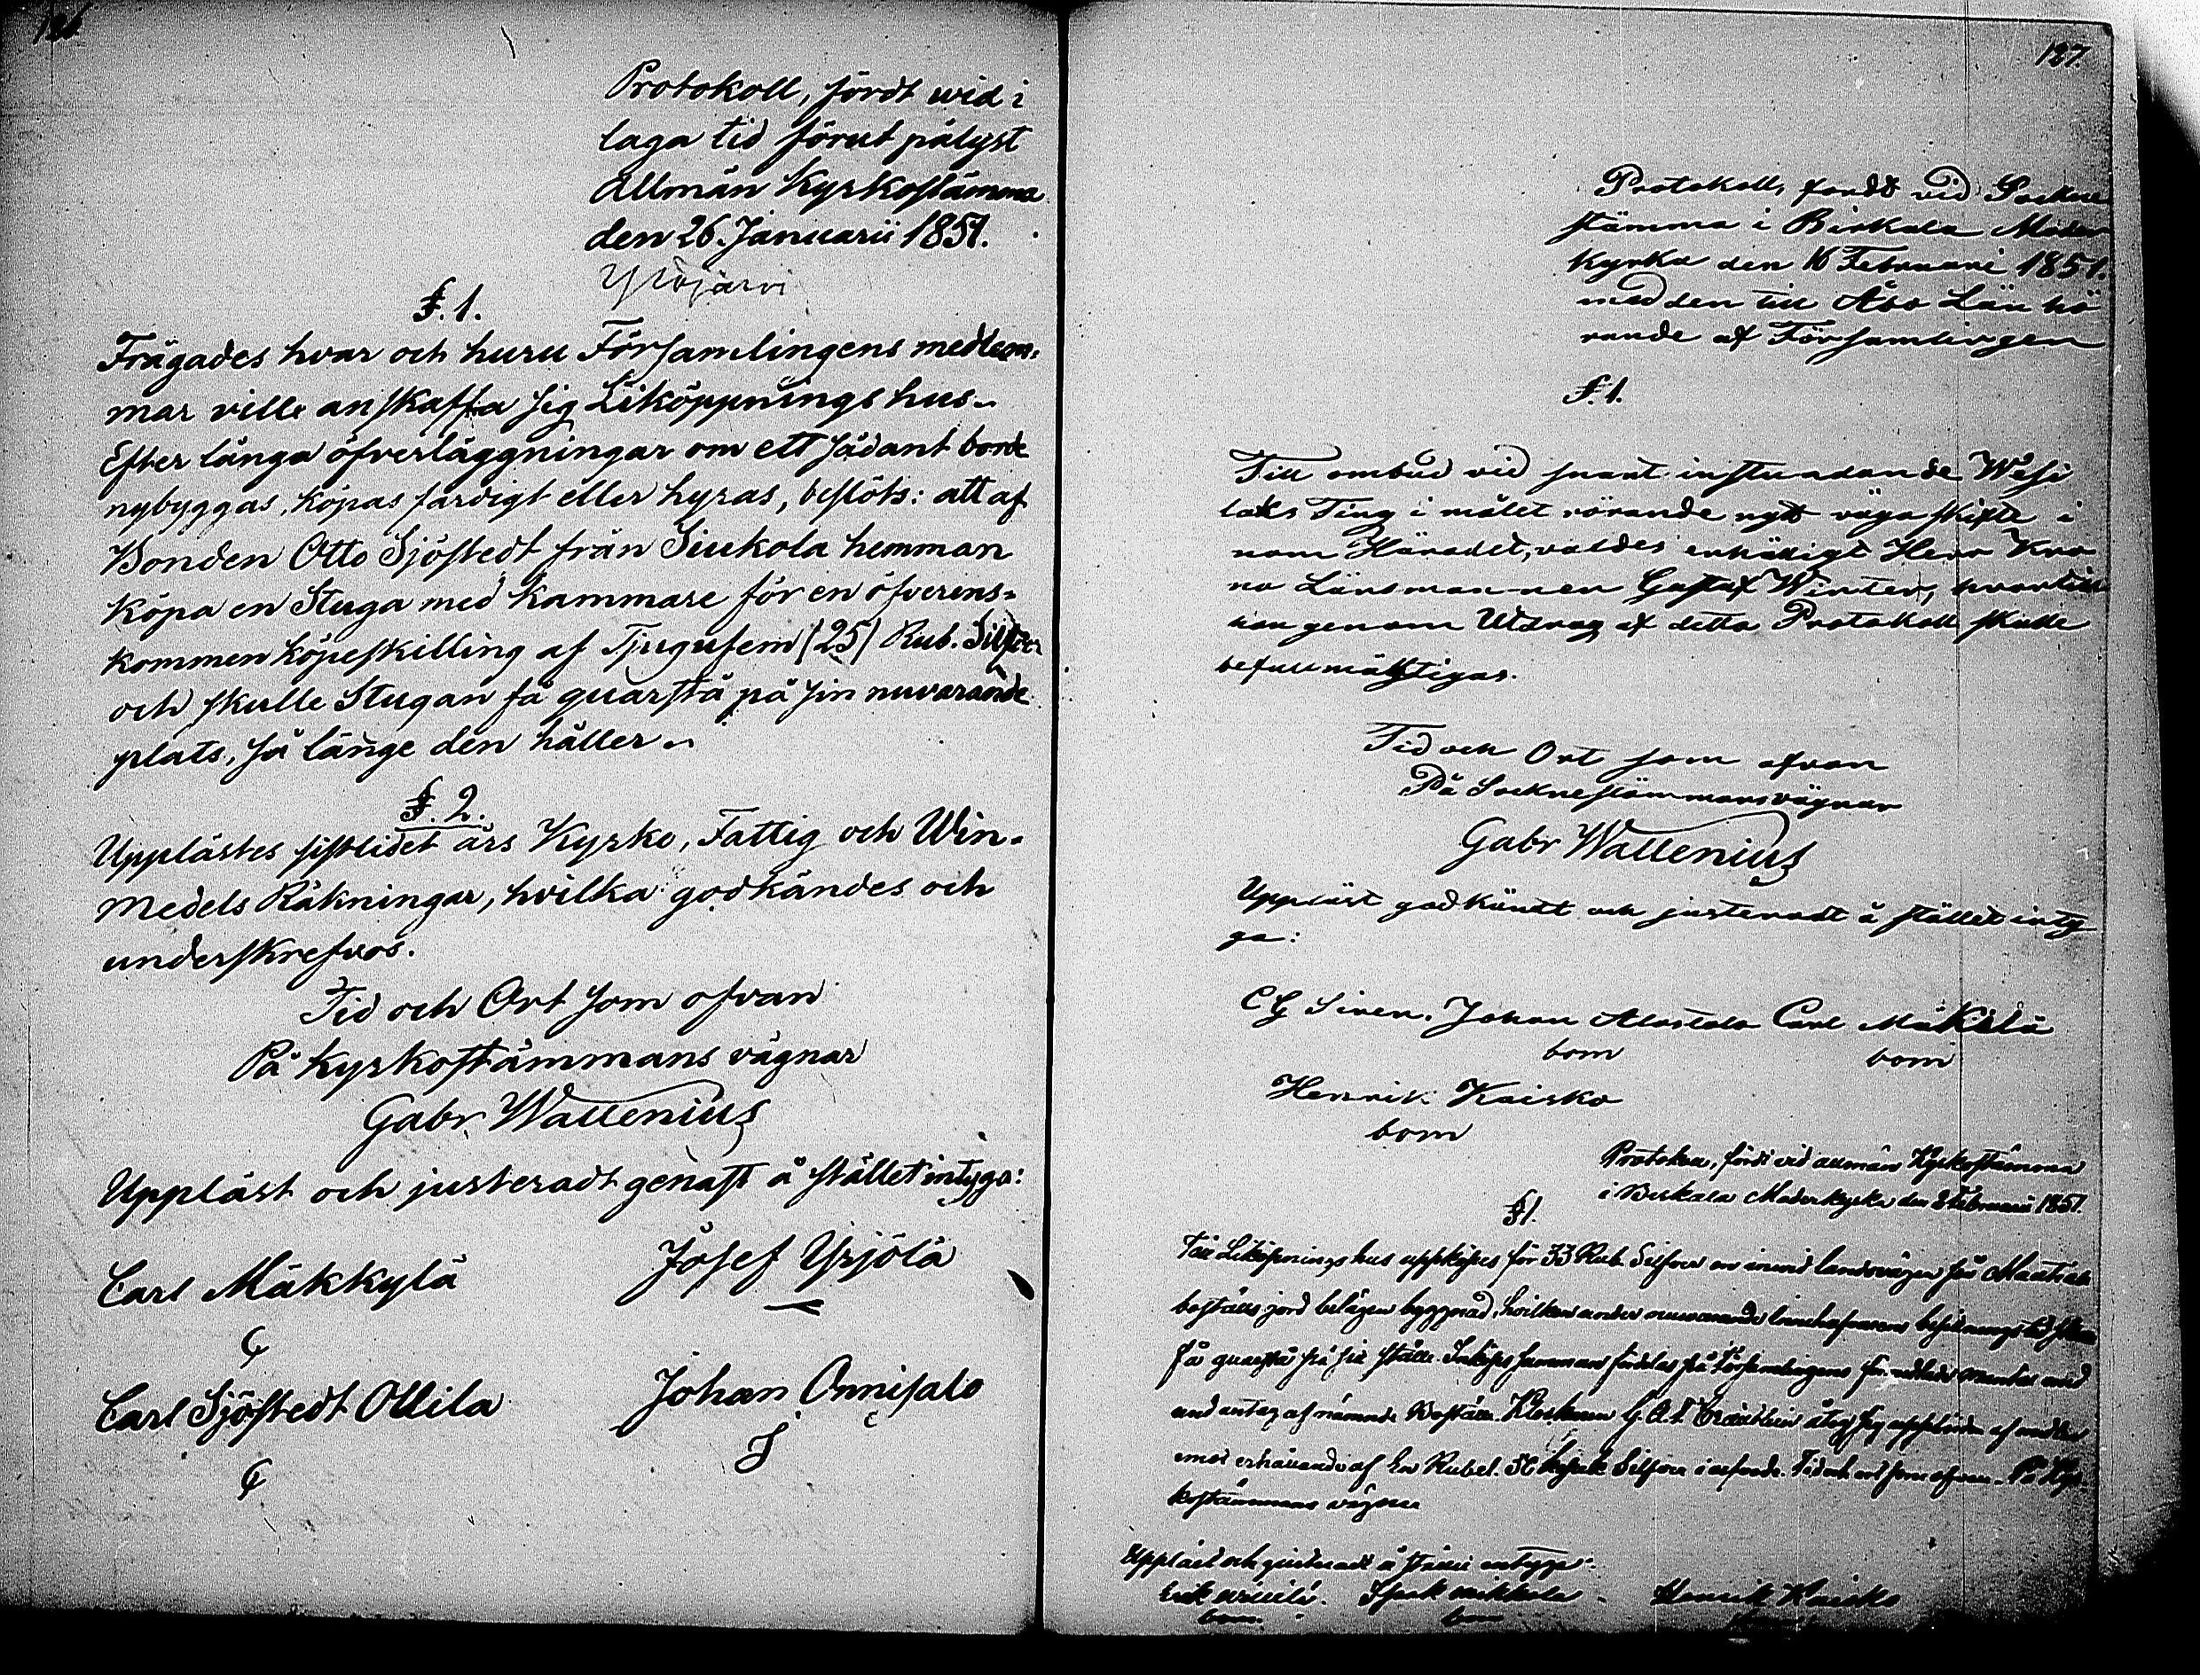 126.
Protokoll, fördt wid i
laga tid förut pålyst
allmän Kyrkostämma
den 26. Januarii 1851.
Ylöjärvi
§. 1.
Frågades hvar och huru Församlingens medlem-
mar ville anskaffa sig Liköppnings hus.
Efter långa öfverläggningar om ett sådant borde
nybyggas, köpas färdigt eller hyras, beslöts: att af
Bonden Otto Sjöstedt från Siukola hemman
köpa en Stuga med kammare för en öfverens-
kommen köpeskilling af Tjugufem (25) Rub. Silfver
och skulle Stugan få quarstå på sin nuvarande
plats, så länge den håller.
§. 2.
Upplästes sistlidet års Kyrko, Fattig och Win-
medels Räkningar, hvilka godkändes och
underskrefvos.
Tid och Ort som ofvan
På Kyrkostämmans vägnar
Gabr Wallenius
Uppläst och justeradt genast å stället intyga:
Carl Mäkkylä
Josef Yrjölä
Carl Sjöstedt Ollila
Johan Onnisalo
127.
Protokoll, fördt vid Sockne
stämma i Birkala Moder
kyrka den 16 Februari 1851.
med den till Åbo Län hö
rande af Församlingen
§. 1.
Till ombud vid snart instundande Wesi
laks Ting i målet rörande nytt vägaskifte i
nom Häradet, valdes enhälligt Herr Kro
no Länsmannen Gustaf Winter, hvartill
han genom Utdrag af detta Protokoll skulle
befullmäktigas.
Tid och Ort som ofvan
På Socknestämmans vägnar
Gabr Wallenius
Uppläst godkändt och justeradt å stället inty
ga:
C G Siren. Johan Alastalo Carl Mäkilä
bom bom
Henrik Kaisko
bom
Protokoll, fördt vid allmän Kyrkostämma
i Birkala Moderkyrka den Februarii 1851.
§1.
Till Liköpnings hus uppköpes för 33 Rub. Silfver en invid landsvägen på
boställs jord belägen byggnad, hvilken under nuvarande innehafvarens besittningstid
få quarstå på sitt ställe. Inköps summan fördelas på Församlingens
undantag af nämnde Boställe. Klockaren G. A. åtog sig
emot erhållande af En Rubel 50 kopek Silfver i Tid och ort som ofvan. På Kyr-
kostämmans vägnar
Uppläst och justeradt å stället intyga:
Erik Isak Mikkola Henrik Kaisko
bom bom